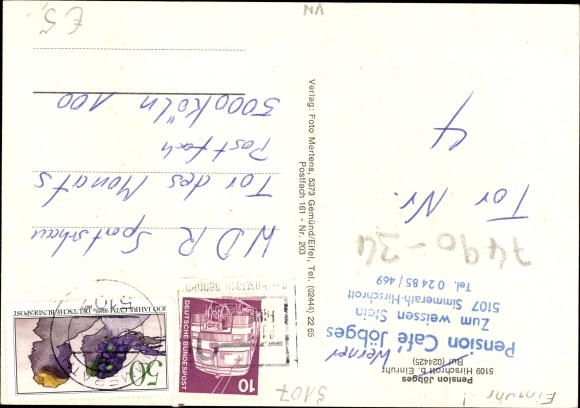 Einruhr!
Pension Jöbges
5109 Hirschrott b. Einruhr
Bul (024425)
Werner
Pension Café Jöbges
"Zum weissen Stein"
5107 Simmerath-Hirschrott
Tel. 0 24 85 / 469
7490-34
Tor Nr.
4
Verlag: Foto Mertens, 5373 Gemünd/Eifel, Tel. (02444) 22 65
Postfach 161 - Nr. 203
5107
10
DEUTSCHE BUNDESPOST
50
100 JAHRE
DEUTSCHE BUNDESPOST
5107
WDR Sportschau
Tor des Monats
Postfach
5000 Köln 100
€ 5,-
VN